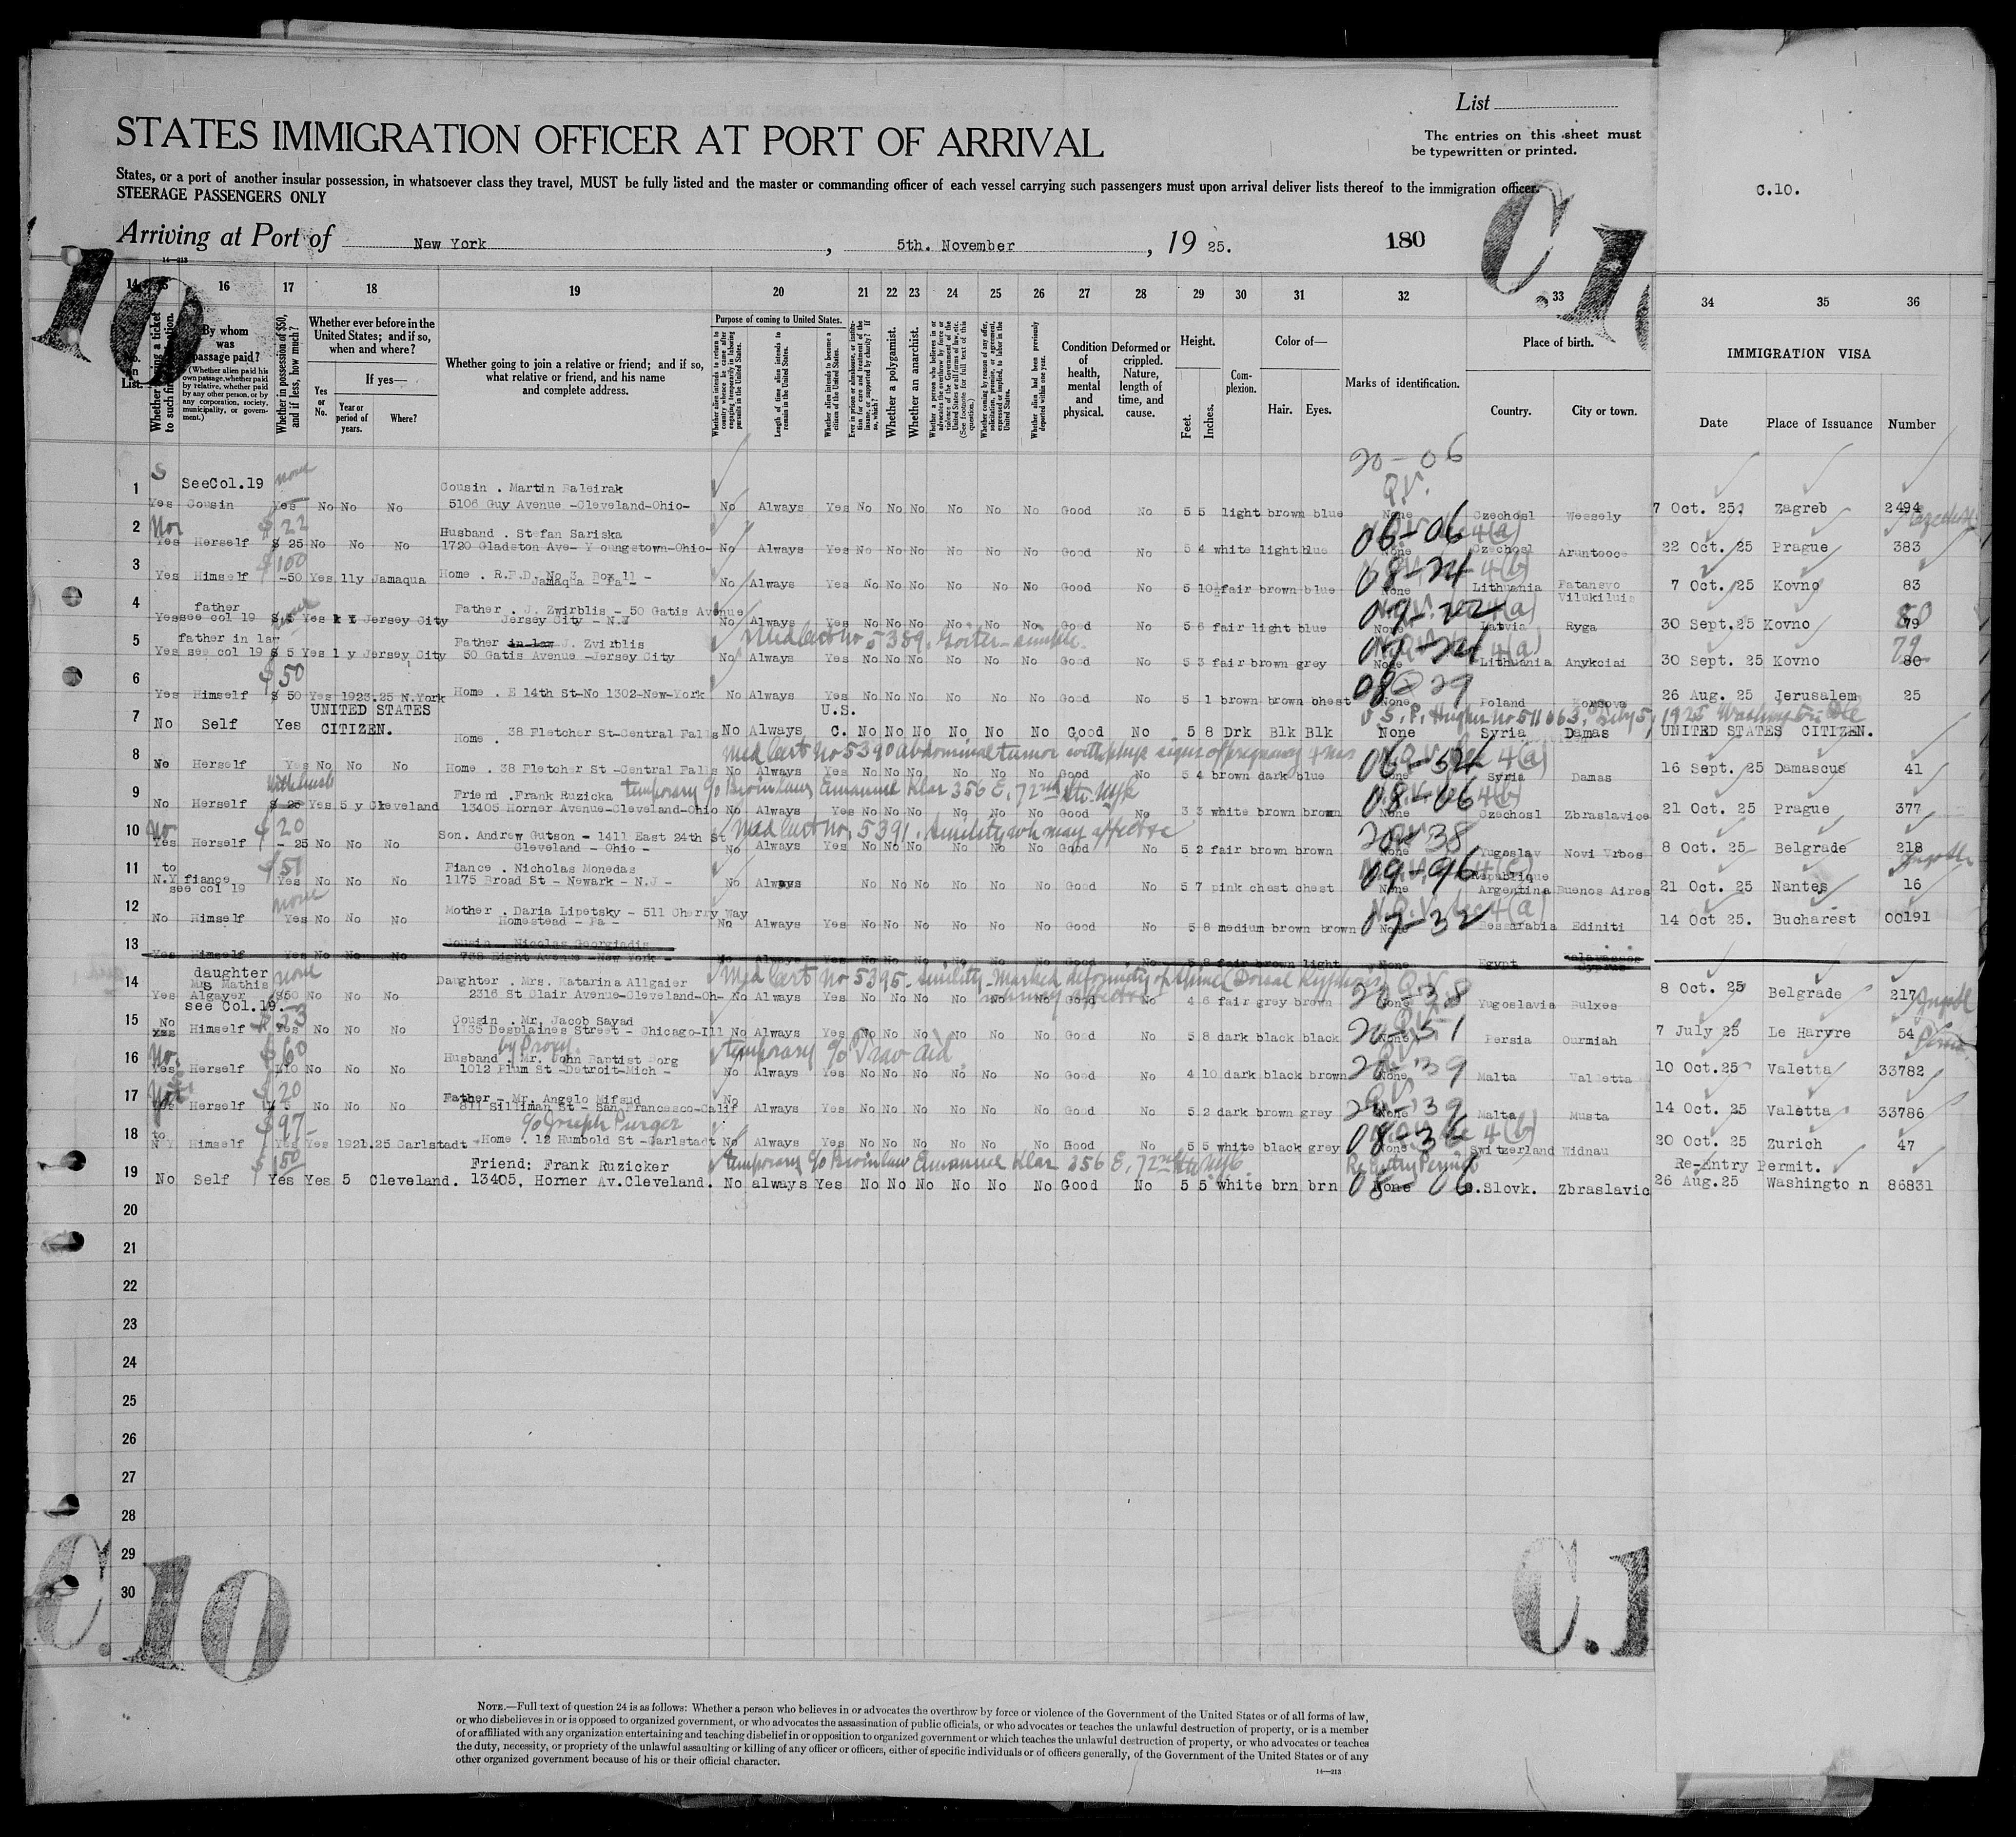 List
STATES IMMIGRATION OFFICER AT PORT OF ARRIVAL
The entries on this sheet must
be typewritten or printed.
States, or a port of another insular possession, in whatsoever class they travel, MUST be fully listed and the master or commanding officer of each vessel carrying such passengers must upon arrival deliver lists thereof to the immigration officer.
STEERAGE PASSENGERS ONLY
C.10.
Arriving at Port of New York, 5th. November, 19 25.
180
14—213
14 16 17 18 19 20 21 22 23 24 25 26 27 28 29 30 31 32 33 34 35 36
By whom was passage paid?
(Whether alien paid his own passage, whether paid by relative, whether paid by any other person, or by any corporation, society, municipality, or government.)
Whether in possession of $50, and if less, how much?
Whether ever before in the United States; and if so, when and where?
Yes or No.
If yes—
Year or period of years.
Where?
Whether going to join a relative or friend; and if so, what relative or friend, and his name and complete address.
Purpose of coming to United States.
Length of time alien intends to remain in the United States.
Whether alien intends to become a citizen of the United States.
Whether a polygamist.
Whether an anarchist.
Condition of health, mental and physical.
Deformed or crippled. Nature, length of time, and cause.
Height.
Feet. Inches.
Complexion.
Color of—
Hair. Eyes.
Marks of identification.
Place of birth.
Country. City or town.
IMMIGRATION VISA
Date Place of Issuance Number
20-06
Q.V.
1 SeeCol.19 none Cousin . Martin
Yes Cousin Yes No No No 5106 Guy Avenue -Cleveland-Ohio- No Always Yes No No No No No No Good No 5 5 light brown blue None Czechosl Wessely 7 Oct. 25 Zagreb 2494
2 $22 Husband . Stefan Sariska 06-06
Yes Herself $ 25 No No No 1720 Gladston Ave- Youngstown-Ohio- No Always Yes No No No No No No Good No 5 4 white light blue None Czechosl 22 Oct. 25 Prague 383
3 $100 Home . R.F.D. No 3 Box 11 - 08-24
Yes Himself -50 Yes 11y Jamaqua Jamaqua - Pa - No Always Yes No No No No No No Good No 5 10½ fair brown blue None Lithuania 7 Oct. 25 Kovno 83
4 father Father . J. Zwirblis - 50 Gatis Avenue 09-22
Yes see col 19 Yes Jersey City Jersey City - N.J No Always Yes No No No No No No Good No 5 6 fair light blue None Latvia Ryga 30 Sept.25 Kovno 79 80
Med Cert No 5389. Goiter - simple.
5 father in law Father in law J. Zvirblis
Yes see col 19 $ 5 Yes 1 y Jersey City 50 Gatis Avenue -Jersey City No Always Yes No No No No No No Good No 5 3 fair brown grey None Lithuania Anykciai 30 Sept. 25 Kovno 80 79
6 $50 08 29
Yes Himself $ 50 Yes 1923.25 N.York Home . E 14th St-No 1302-New-York No Always Yes No No No No No No Good No 5 1 brown brown chest None Poland 26 Aug. 25 Jerusalem 25
7 UNITED STATES U.S.
No Self Yes CITIZEN. Home . 38 Fletcher St-Central Falls No Always C. No No No No No No Good No 5 8 Drk Blk Blk None Syria Damas UNITED STATES CITIZEN.
Med Cert No 5390 abdominal tumor with phys signs of pregnancy 4 mos
8 06-52
No Herself Yes No No No Home . 38 Fletcher St -Central Falls No Always Yes No No No No No No Good No 5 4 brown dark blue None Syria Damas 16 Sept. 25 Damascus 41
9 Friend .Frank Ruzicka temporary c/o Bro in law, Emanuel Klar 356 E. 72nd St. NYC 08-06
No Herself $ 25 Yes 5 y Cleveland 13405 Horner Avenue-Cleveland-Ohio No Always Yes No No No No No No Good No 3 3 white brown brown None Czechosl Zbraslavice 21 Oct. 25 Prague 377
10 $20 Son. Andrew Gutson - 1411 East 24th St Med Cert No. 5391. Senility wh may affect 20-38
Yes Herself - 25 No No No Cleveland - Ohio - No Always Yes No No No No No No Good No 5 2 fair brown brown None Yugoslav Novi Vrbos 8 Oct. 25 Belgrade 218
11 to $51 Fiance . Nicholas Monedas 09-96
N.Y fiance see col 19 Yes No No No 1175 Broad St - Newark - N.J - No Always No No No No No No Good No 5 7 pink chest chest None Republique Argentina Buenos Aires 21 Oct. 25 Nantes 16
12 none Mother . Daria Lipetsky - 511 Cherry Way 07-32
No Himself Yes No No No Homestead - Pa - No Always Yes No No No No No No Good No 5 8 medium brown brown None Bessarabia Ediniti 14 Oct 25. Bucharest 00191
13 Cousin . Nicolas Georgiadis
Yes Himself Yes No No No 738 Eight Avenue - New York - No Always Yes No No No No No No Good No 5 8 fair brown light None Egypt Cyprus
14 daughter Mrs Mathis none Daughter . Mrs. Katarina Allgaier Med Cert No 5395 - senility - marked deformity of spine (Dorsal Kyphosis) 20-38
Yes Algayer see Col.19. $50 No No No 2316 St Clair Avenue-Cleveland-Oh- No Always Yes No No No No No No Good No 4 6 fair grey brown None Yugoslavia Bulxes 8 Oct. 25 Belgrade 217
15 No $23 Cousin . Mr. Jacob Sayad 20-51
Himself Yes No No No 1135 Desplaines Street - Chicago-Ill No Always Yes No No No No No No Good No 5 8 dark black black None Persia Ourmiah 7 July 25 Le Harvre 54
16 No $60 by Proxy. Husband . Mr. John Baptist Borg temporary c/o Trav aid 20-39
Yes Herself No No No 1012 Plum St -Detroit-Mich - No Always Yes No No No No No No Good No 4 10 dark black brown None Malta Valletta 10 Oct.25 Valetta 33782
17 $20 Father - Mr. Angelo Mifsud 20-39
Herself No No No 811 Silliman St - San-Francesco-Calif No Always Yes No No No No No No Good No 5 2 dark brown grey None Malta Musta 14 Oct. 25 Valetta 33786
18 to $97- c/o Joseph Purger 08-36
N.Y Himself Yes Yes 1921.25 Carlstadt Home . 12 Humbold St -Carlstadt No Always Yes No No No No No No Good No 5 5 white black grey None Switzerland Widnau 20 Oct. 25 Zurich 47
19 $150 Friend: Frank Ruzicker temporary c/o Bro in law Emanuel Klar 356 E. 72nd St NYC Re Entry Permit Re-Entry Permit.
No Self Yes Yes 5 Cleveland. 13405, Horner Av.Cleveland. No always Yes No No No No No No Good No 5 5 white brn brn None 08 06 C.Slovk. Zbraslavic 26 Aug.25 Washington 86831
20
21
22
23
24
25
26
27
28
29
30
C.10
C.1
NOTE.—Full text of question 24 is as follows: Whether a person who believes in or advocates the overthrow by force or violence of the Government of the United States or of all forms of law,
or who disbelieves in or is opposed to organized government, or who advocates the assassination of public officials, or who advocates or teaches the unlawful destruction of property, or is a member
of or affiliated with any organization entertaining and teaching disbelief in or opposition to organized government or which teaches the unlawful destruction of property, or who advocates or teaches
the duty, necessity, or propriety of the unlawful assaulting or killing of any officer or officers, either of specific individuals or of officers generally, of the Government of the United States or of any
other organized government because of his or their official character.
14—213